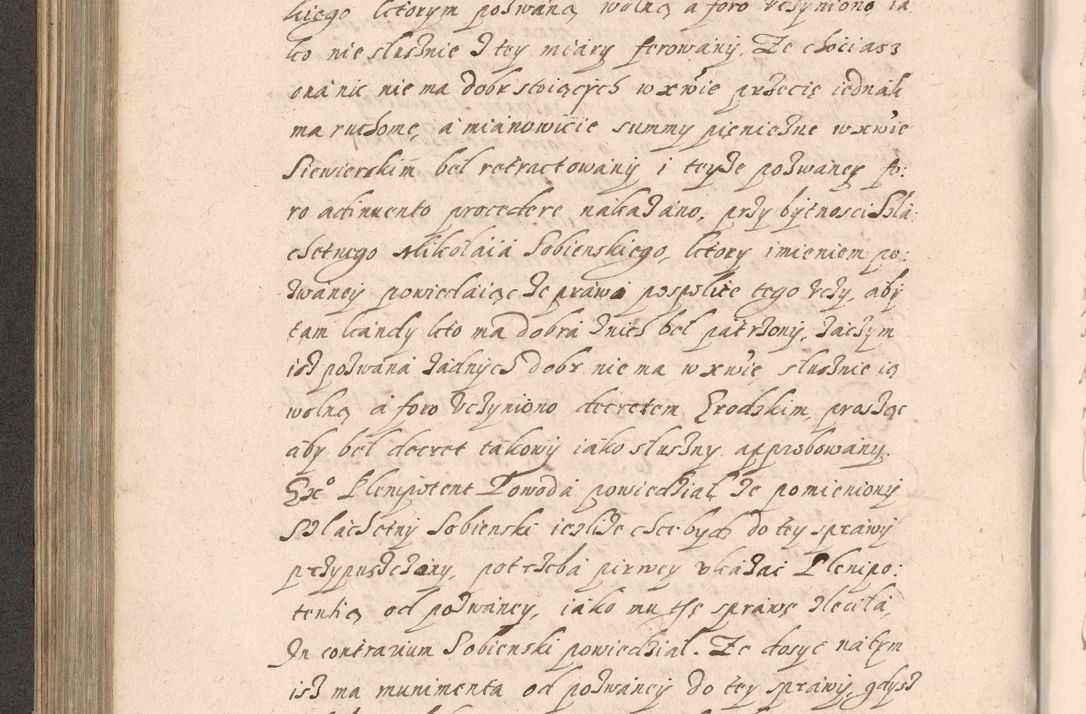 kiego ktorym pozwaną wolną a foro uczyniono ia
ko nie slusznie z tey miary ferowany, Ze chociasz
ona nic nie ma dobr stoiących w xwie przecię iednak
ma ruchome, a mianowicie summy pieniezne w xwie
Siewierskim bel retractowany i teyze pozwaney fo:
ro adinuento procedere nakazano, przy bytnosci Szla
chetnego Mikolaia Sobienskiego, ktory imieniem po:
zwaney powiedaiąc ze prawa pospolite tego uczy, aby
tam kandy kto ma dobra znich bel patrzony, zaczym
isz pozwana zadnych dobr nie ma w xwie slusznie ią
wolną a foro uczyniono decretem Grodzkim, prosząc
aby bel decret takowy iako sluszny approbowany.
Exo Plenipotent Powoda powiedzial, ze pomieniony
Szlachetny Sobienski iezlize chce bydz do tey sprawy
przypuszczany, potrzeba pirwey ukazac Plenipo:
tentią od pozwaney, iako mu tę sprawę zleciła,
In contrarium Sobienski powiedzial. Ze dosyc na tym
isz ma munimenta od pozwaney do tey sprawy, gdysz